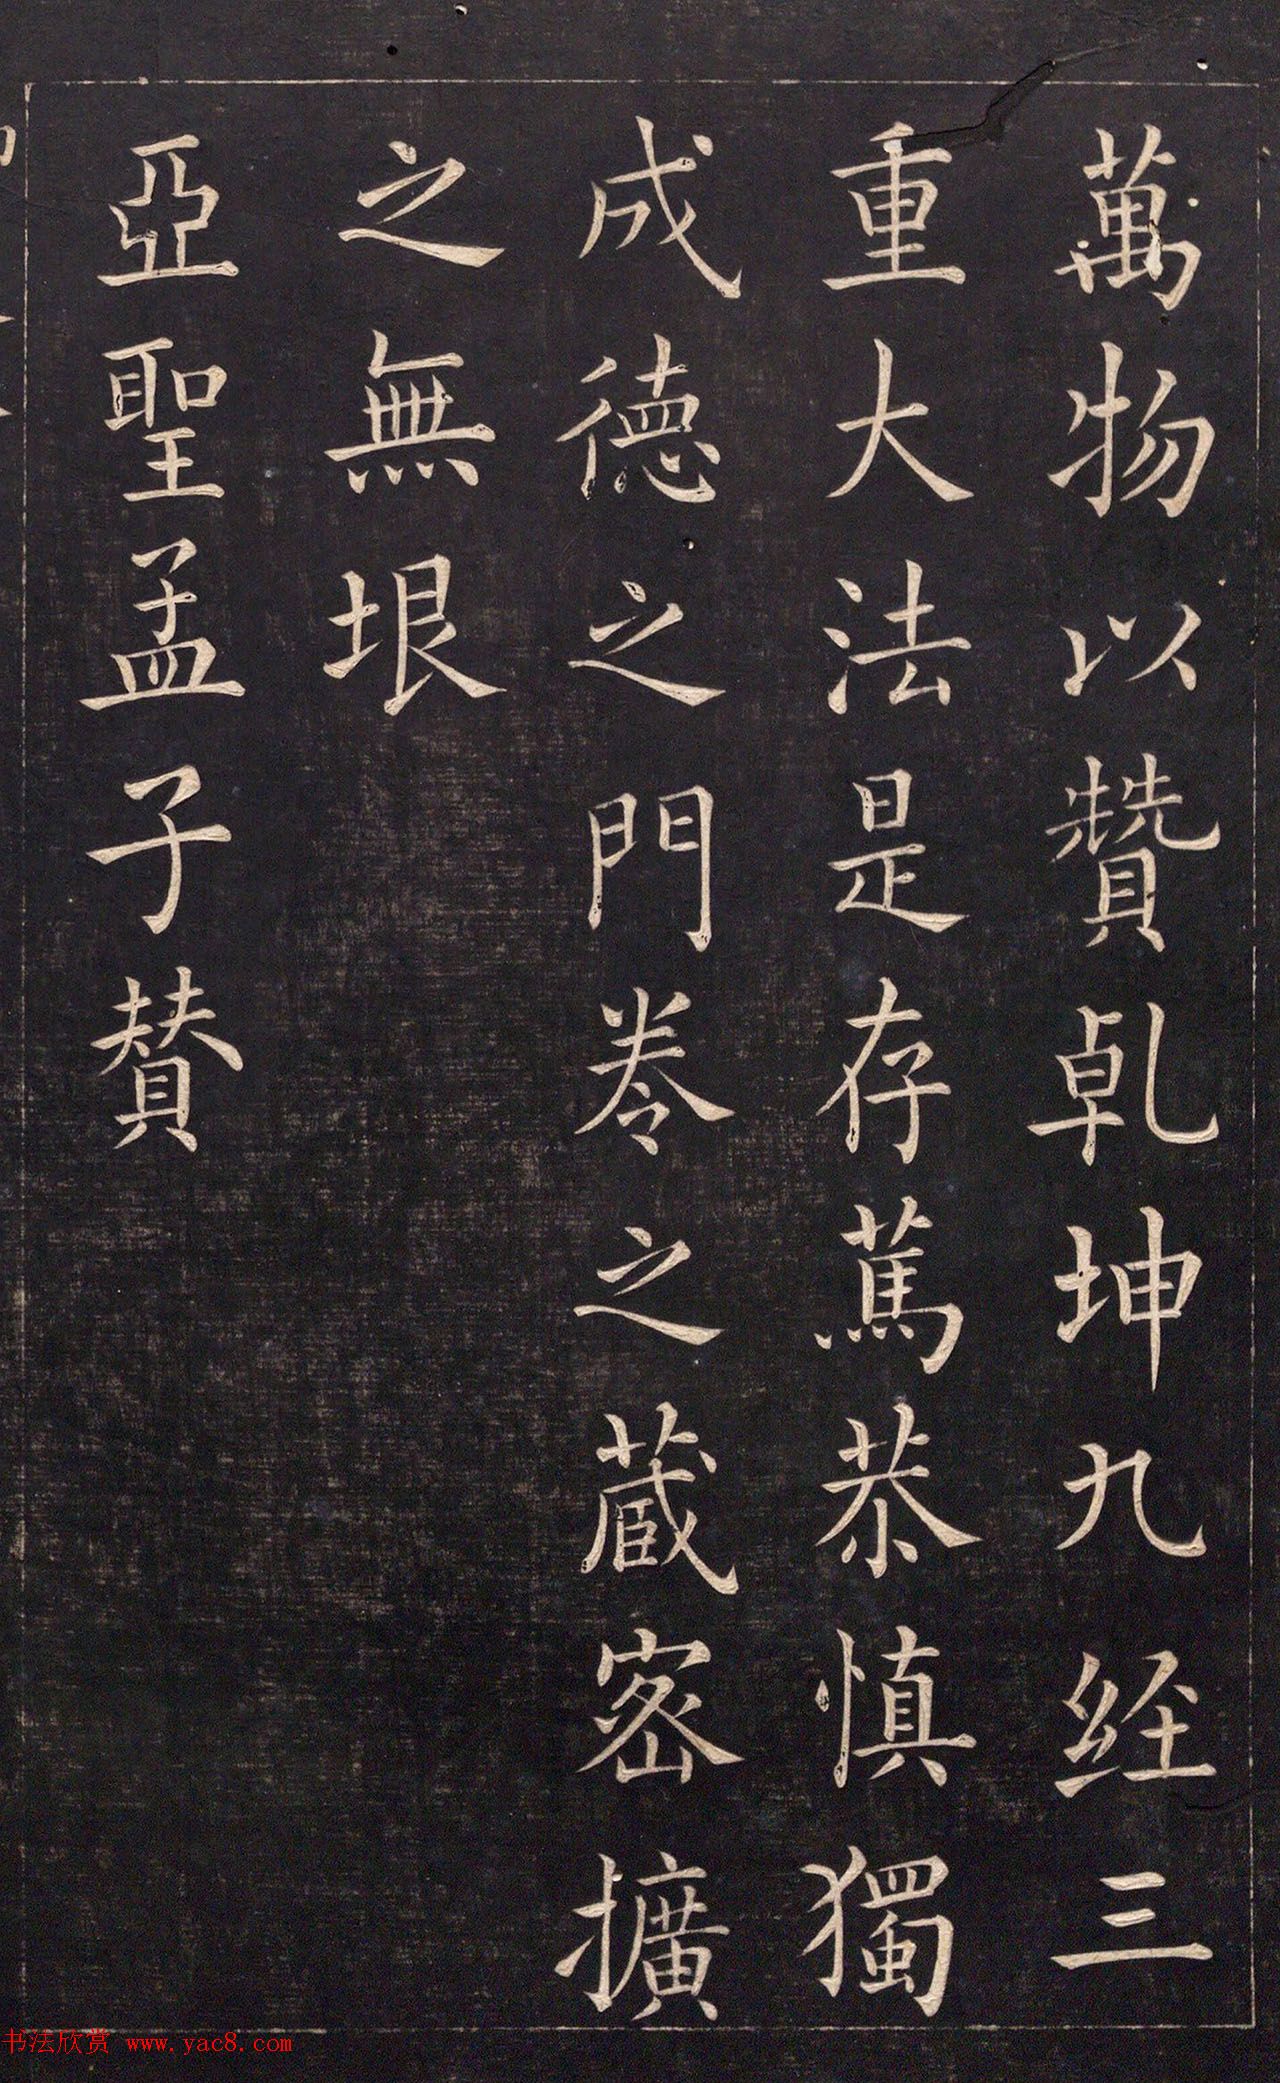 萬物以贊乹坤九经三
重大法是存篤恭慎獨
成德之門卷之蔵宻擴
之無垠
亞聖孟子賛
书法欣赏 www.yac8.com